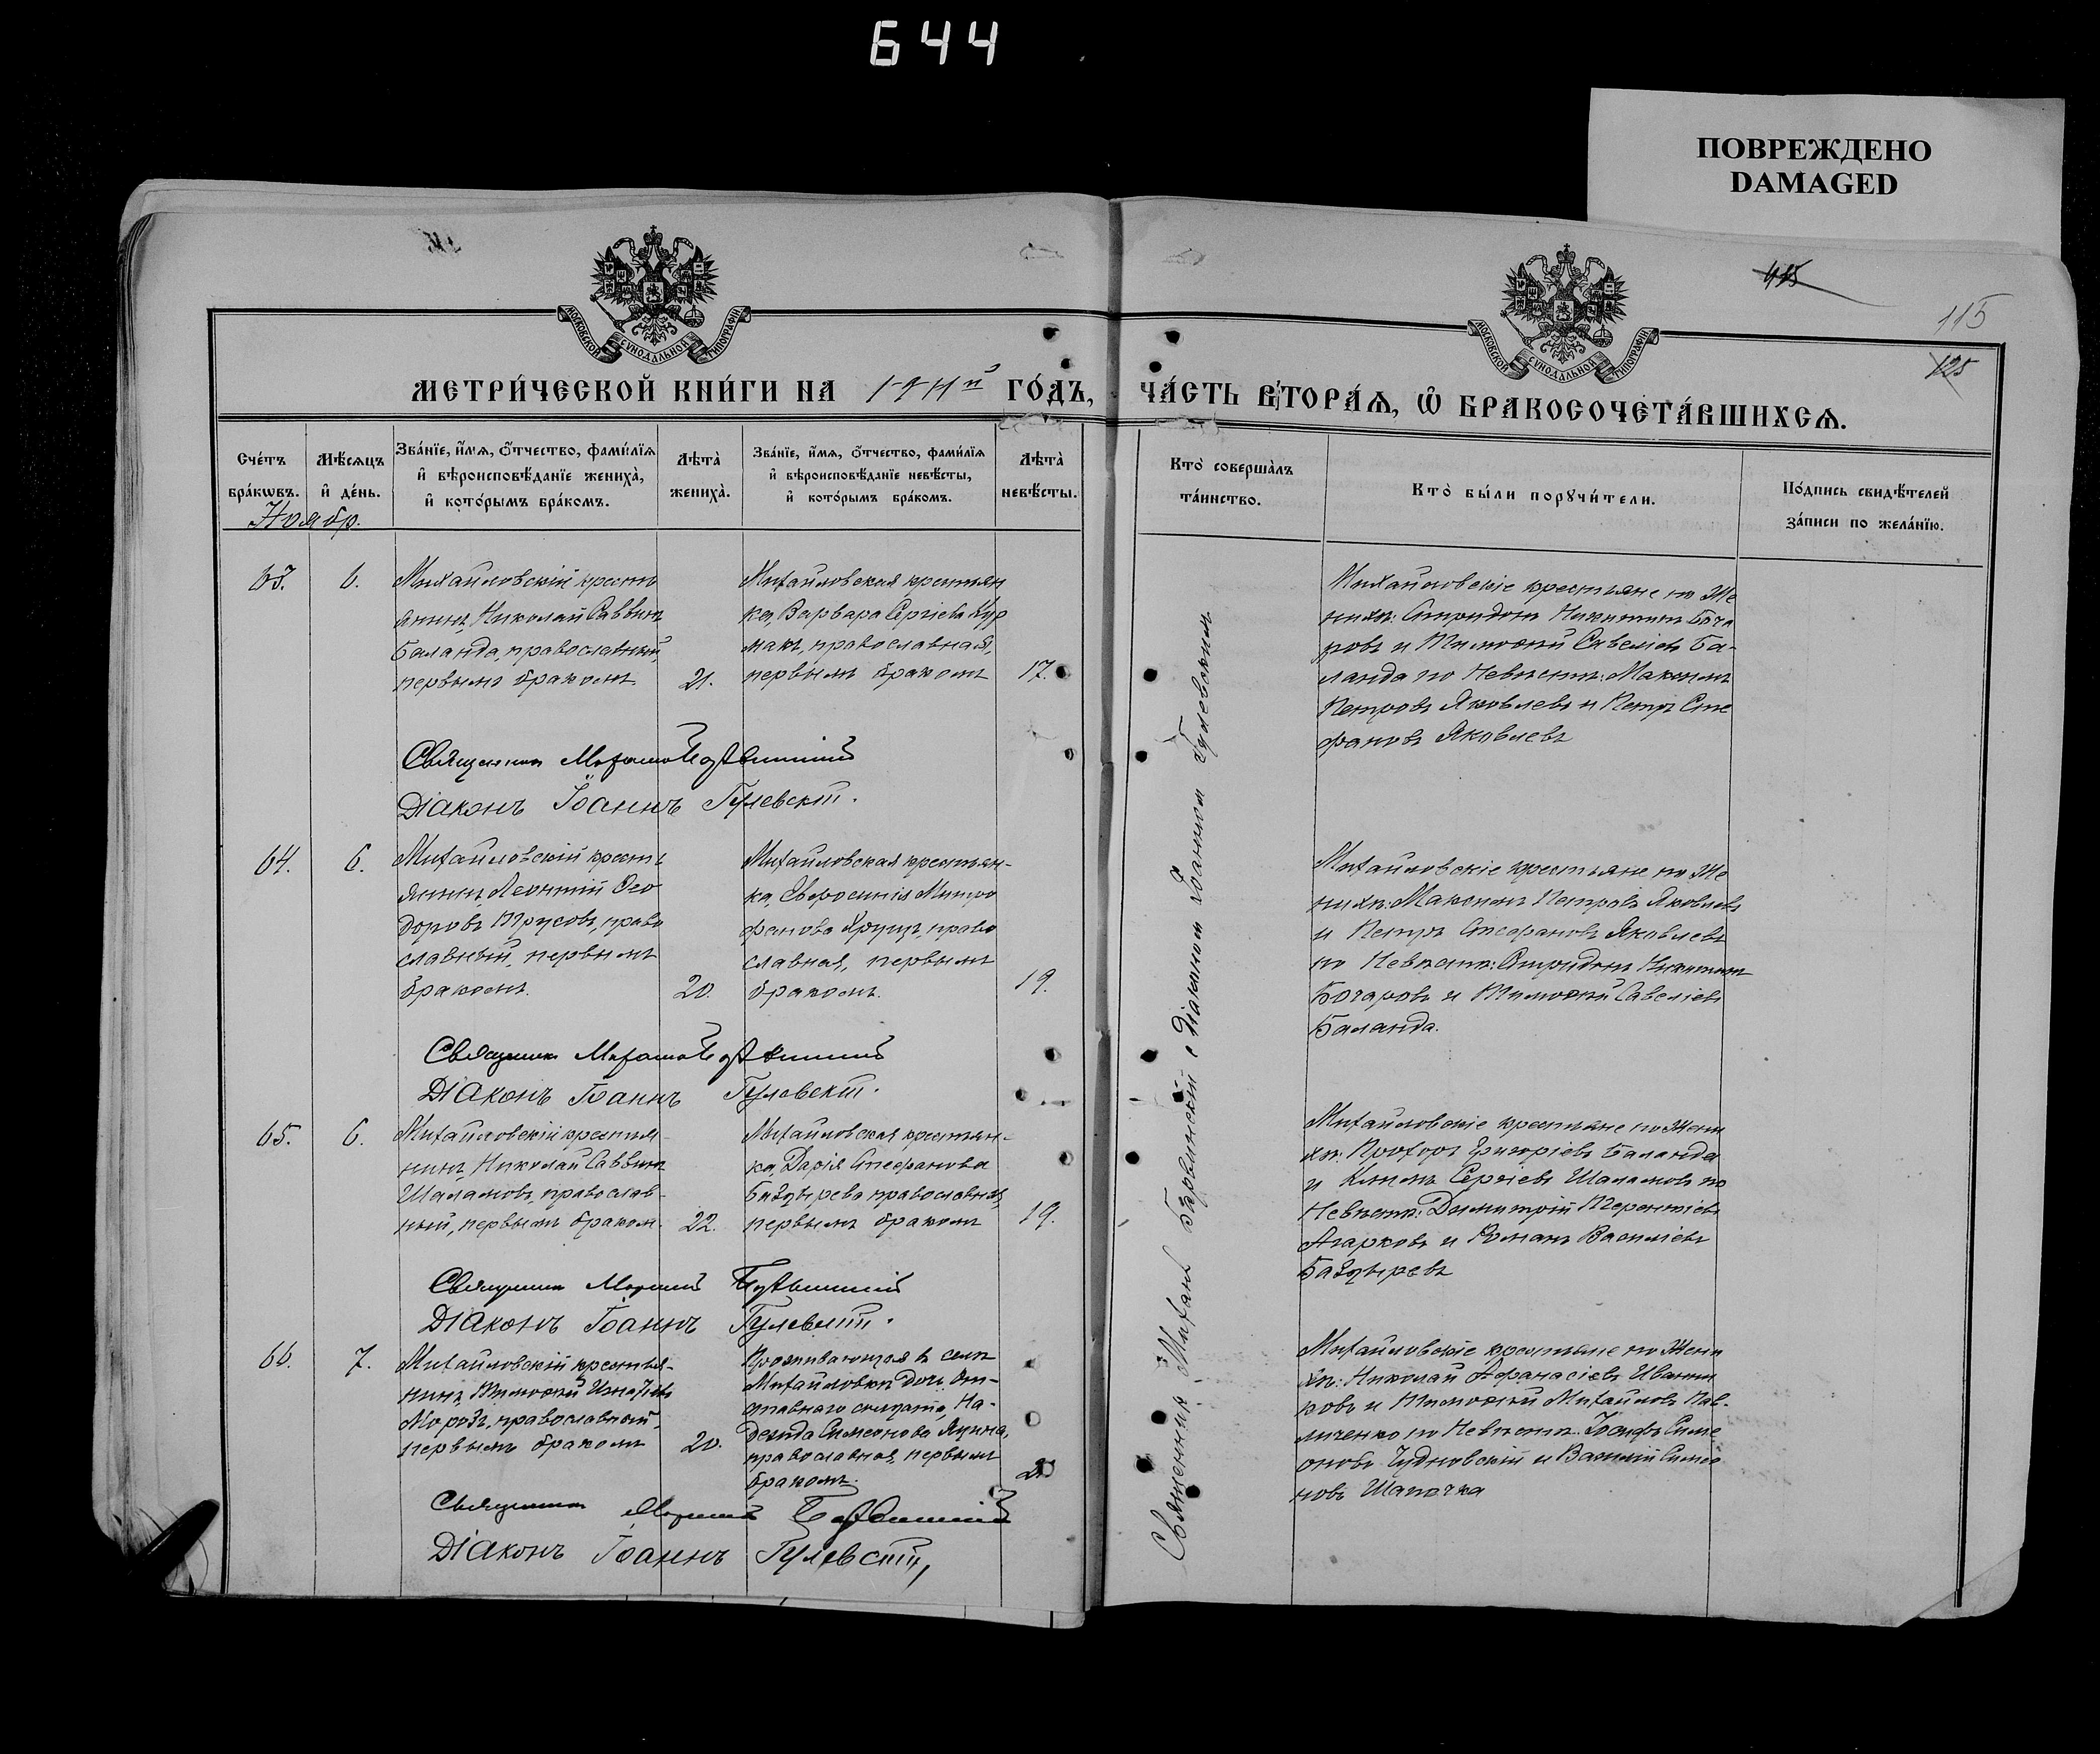 644
ПОВРЕЖДЕНО
DAMAGED
МОСКОВСКОЙ СѴНОДАЛЬНОЙ ТИПОГРАФІИ
МОСКОВСКОЙ СѴНОДАЛЬНОЙ ТИПОГРАФІИ
115
125
МЕТРИ́ЧЕСКОЙ КНИ́ГИ НА 1911й ГО́ДЪ,
ЧА́СТЬ ВТОРА́Я, Ѡ БРАКОСОЧЕТА́ВШИХСЯ.
Сче́тъ
бра́кѡвъ.
Мѣ́сяцъ
и҆ де́нь.
Зва́нїе, и҆́мя, ѻ҆́тчество, фами́лїя
и҆ вѣроисповѣ́данїе жениха̀,
и҆ кото́рымъ бра́комъ.
Лѣта̀
жениха̀.
Зва́нїе, и҆́мя, ѻ҆́тчество, фами́лїя
и҆ вѣроисповѣ́данїе невѣ́сты,
и҆ кото́рымъ бра́комъ.
Лѣта̀
невѣ́сты.
Кто̀ соверша̀лъ
та́инство.
Кто̀ бы́ли порꙋчи́тели.
По́дпись свидѣ́телей
за́писи по жела́нїю.
Ноябр.
63.
6.
Михайловскій кресть
янинъ, Николай Саввинъ
Баланда, православный,
первымъ бракомъ
21.
Михайловская крестьян
ка, Варвара Сергіева Кур
макъ, православная,
первымъ бракомъ
17.
Михайловскіе крестьяне по Же
нихѣ: Спиридонъ Никитинъ Боча
ровъ и Тимоѳей Савеліевъ Ба-
ланда по Невѣстѣ: Максимъ
Петровъ Яковлевъ и Петръ Сте
фановъ Яковлевъ
Священникъ
Діаконъ Іоаннъ Гулевскій.
64.
6.
Михайловскій кресть
янинъ, Леонтій Ѳео
доровъ Трусовъ, право
славный, первымъ
бракомъ.
20.
Михайловская крестьян-
ка, Евфросинія Митро
фанова Хрущъ, право
славная, первымъ
бракомъ.
19.
Михайловскіе крестьяне по Же
нихѣ: Максимъ Петровъ Яковлевъ
и Петръ Стефановъ Яковлевъ
по Невѣстѣ: Спиридонъ Никитинъ
Бочаровъ и Тимоѳей Савеліевъ
Баланда.
Священникъ
Діаконъ Іоаннъ Гулевскій.
65.
6.
Михайловскій крестья-
нинъ, Николай Саввинъ
Шаламовъ, православ-
ный, первымъ бракомъ.
22.
Михайловская крестьян-
ка, Дарія Стефанова
Баздырева православная,
первымъ бракомъ
19.
Михайловскіе крестьяне по Жени
хѣ: Прохоръ Григоріевъ Баланда
и Климъ Сергіевъ Шаламовъ по
Невѣстѣ: Димитрій Терентіевъ
Агарковъ и Романъ Василіевъ
Баздыревъ
Священникъ
Діаконъ Іоаннъ Гулевскій.
66.
7.
Михайловскій крестья-
нинъ, Тимоѳей Игнатіевъ
Морозъ, православный,
первымъ бракомъ
20.
Проживающая въ селѣ
Михайловкѣ дочь От-
ставного солдата, На-
дежда Симеонова Яцина,
православная, первымъ
бракомъ.
Михайловскіе крестьяне по Жени
хѣ: Николай Афанасіевъ Иванни
ковъ и Тимоѳей Михайловъ Пав-
личенко по Невѣстѣ: Іосифъ Симе
оновъ Чудновскій и Василій Симео
новъ Шапочка
Священникъ
Діаконъ Іоаннъ Гулевскій,
Священникъ Михаилъ с Діакономъ Іоанномъ Гулевскимъ